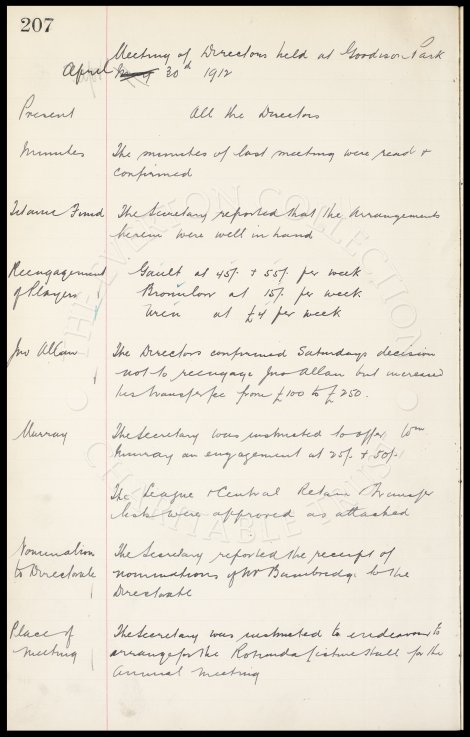 207
Meeting of Directors held at Goodison Park
April 30th 1912
Present All the Directors
Minutes The minutes of last meeting were read &
confirmed
Titanic Fund The Secretary reported that the Arrangements
herein were well in hand
Reengagement Gault at 45/- & 55/- per week
of Players Brownlow at 15/- per week
Uren at £4 per week
Jno Allan The Directors confirmed Saturdays decision
not to reengage Jno Allan but increased
his transfer fee from £100 to £250.
Murray The Secretary was instructed to offer Wm
Murray an engagement at 25/- & 50/-
The League & Central Retain & Transfer
lists were approved as attached
Nomination The Secretary reported the receipt of
to Directorate nominations of Mr Bainbridge to the
Directorate
Place of The Secretary was instructed to endeavour to
Meeting arrange for the Rotunda Lecture Hall for the
Annual Meeting
THE EVERTON COLLECTION
CHARITABLE TRUST